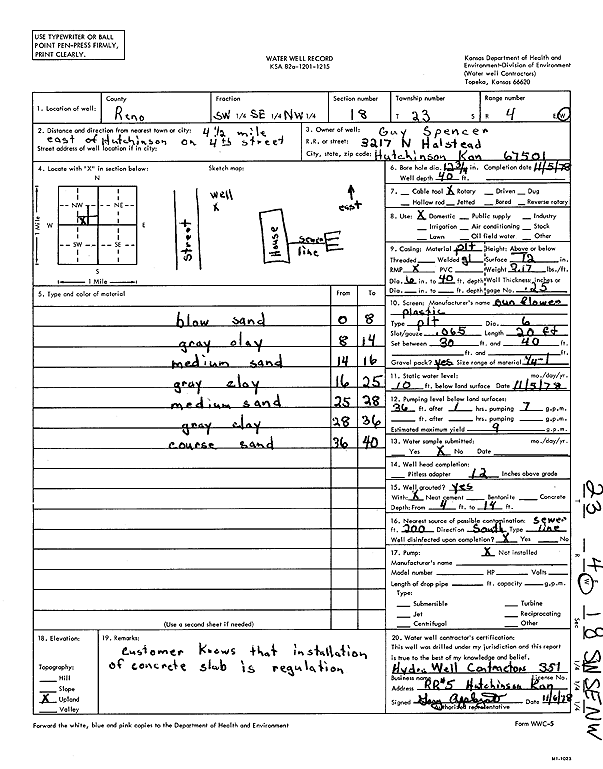 USE TYPEWRITER OR BALL
POINT PEN-PRESS FIRMLY,
PRINT CLEARLY.
WATER WELL RECORD
KSA 82a-1201-1215
Kansas Department of Health and
Environment-Division of Environment
(Water well Contractors)
Topeka, Kansas 66620
1. Location of well:
County
Reno
Fraction
SW 1/4 SE 1/4 NW 1/4
Section number
18
Township number
T 23 S
Range number
R 4 E/W
2. Distance and direction from nearest town or city: 4 1/2 mile
east of Hutchinson on 4th street
Street address of well location if in city:
3. Owner of well: Guy Spencer
R.R. or street: 3217 N Halstead
City, state, zip code: Hutchinson Kan 67501
4. Locate with "X" in section below:
N
NW NE
W E
SW SE
S
1 Mile
1 Mile
X
Sketch map:
well
x
Street
House
sewer
line
east
5. Type and color of material
From To
blow sand 0 8
gray clay 8 14
medium sand 14 16
gray clay 16 25
medium sand 25 28
gray clay 28 36
course sand 36 40
(Use a second sheet if needed)
6. Bore hole dia. in. Completion date 11/5/78
Well depth 40 ft.
7. Cable tool X Rotary Driven Dug
Hollow rod Jetted Bored Reverse rotary
8. Use: X Domestic Public supply Industry
Irrigation Air conditioning Stock
Lawn Oil field water Other
9. Casing: Material plt Height: Above or below
Threaded Welded gl Surface 12 in.
RMP X PVC Weight 2.17 lbs./ft.
Dia. 6 in. to 40 ft. depth Wall Thickness: inches or
Dia. in. to ft. depth gage No. .25
10. Screen: Manufacturer's name Sun flower
plastic
Type plt Dia. 6
Slot/gauze .065 Length 20 ft
Set between 30 ft. and 40 ft.
ft. and ft.
Gravel pack? yes Size range of material 1/4-1
11. Static water level: mo./day/yr.
10 ft. below land surface Date 11/5/78
12. Pumping level below land surface:
36 ft. after 1 hrs. pumping 7 g.p.m.
ft. after hrs. pumping g.p.m.
Estimated maximum yield 9 g.p.m.
13. Water sample submitted: mo./day/yr.
Yes X No Date
14. Well head completion:
Pitless adapter 12 Inches above grade
15. Well grouted? yes
With: X Neat cement Bentonite Concrete
Depth: From 4 ft. to 14 ft.
16. Nearest source of possible contamination: sewer
ft. 200 Direction South Type line
Well disinfected upon completion? X Yes No
17. Pump: X Not installed
Manufacturer's name
Model number HP Volts
Length of drop pipe ft. capacity g.p.m.
Type:
Submersible Turbine
Jet Reciprocating
Centrifugal Other
18. Elevation:
Topography:
Hill
Slope
X Upland
Valley
19. Remarks:
customer knows that installation
of concrete slab is regulation
20. Water well contractor's certification:
This well was drilled under my jurisdiction and this report
is true to the best of my knowledge and belief.
Hydro Well Contractors 351
Business name License No.
Address RR#5 Hutchinson Kan
Signed Date 11/6/78
Authorized representative
Forward the white, blue and pink copies to the Department of Health and Environment
Form WWC-5
T 23
R 4 W
Sec 18
SW SE NW
1/4 1/4 1/4